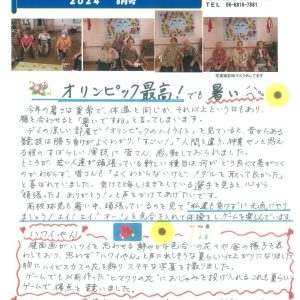 2024 8月号
TEL 06-6816-7881
写真撮影時マスクを外してます
オリンピック最高！でも暑い
今年の暑さは異常で、体温と同じか、それ以上という日もあり、
顔を合わせると「暑いですね。」と言ってします。
デイの涼しい部屋で「オリンピックのハイライト」を見ていると、昔からある
競技は勝ち負けがよくわかり、「すごい！」「人間と違う、神業や」と思え
る程のすばらしい演技に皆さん、感動しておられました。
ところが、若い人達が頑張っている新しい種目は何がどう良くて勝がつく
のかわからず、皆さんも「よくわからないけど、メダルを取って良かった」
と喜ばれていました。負けて悔し泣きをしている選手を見ると心から
「頑張ったよ、ありがとう」と声をかけてあげたいです。
高校球児も暑い中、頑張っているので「私達も負けずに元気にやり
ましょう！エイ！エイ！オー！」を気合をいれて体操とゲームを楽しんでいます。
ハワイやん
健康画がハワイを思わせる鮮やかな色合いの花や海の様子を表
わしており、思わず「ハワイやん」と声に出しそうな夏らしい仕上がりになりました。
胸にハイビスカスの花を飾りステキな写真を撮りました。
ゲームでも永野作「ヒマワリの花」におじゃみを投げ入れる夏らしい
ゲームで得点を競いました。